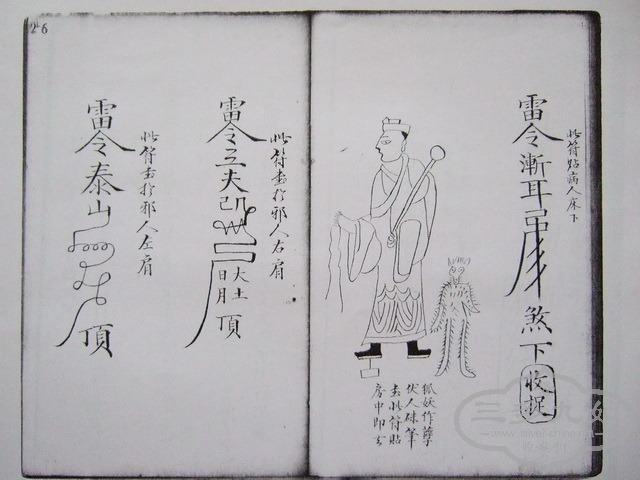 26
此符貼病人床下
雷令漸耳
煞下
收捉
狐妖作孽
伏人硃筆
畫此符貼
房中即去
此符畫扵邪人右肩
雷令
大土
日月
頂
此符畫扵邪人左肩
雷令泰山
頂